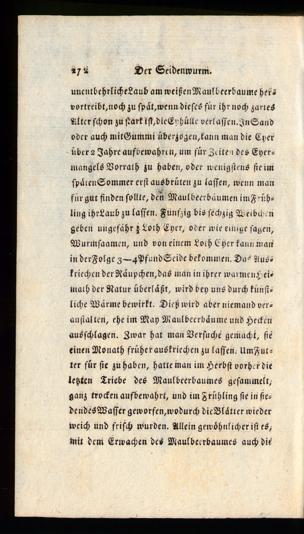 272 Der Seidenwurm.
unentbehrliche Laub am weißen Maulbeerbaume her⸗
vortreibt, noch zu spät, wenn dieses für ihr noch zartes
Alter schon zu stark ist, die Eyhülle verlassen. In Sand
oder auch mit Gummi überzogen, kann man die Eyer
über 2 Jahre aufbewahren, um für Zeiten des Eyer⸗
mangels Vorrath zu haben, oder wenigstens sie im
späten Sommer erst ausbrüten zu lassen, wenn man
für gut finden sollte, den Maulbeerbäumen im Früh⸗
ling ihr Laub zu lassen. Funfzig bis sechzig Weibchen
geben ungefähr Loth Eyer, oder wie einige sagen,
Wurmsaamen, und von einem Loth Eyer kann man
in der Folge 3—4 Pfund Seide bekommen. Das Aus⸗
kriechen der Räupchen, das man in ihrer warmen Hei⸗
math der Natur überläßt, wird bey uns durch künst⸗
liche Wärme bewirkt. Dieß wird aber niemand ver⸗
anstalten, ehe im May Maulbeerbäume und Hecken
ausschlagen. Zwar hat man Versuche gemacht, sie
einen Monath früher auskriechen zu lassen. Um Fut⸗
ter für sie zu haben, hatte man im Herbst vorher die
letzten Triebe des Maulbeerbaumes gesammelt,
ganz trocken aufbewahrt, und im Frühling sie in sie⸗
dendes Wasser geworfen, wodurch die Blätter wieder
weich und frisch wurden. Allein gewöhnlicher ist es,
mit dem Erwachen des Maulbeerbaumes auch die